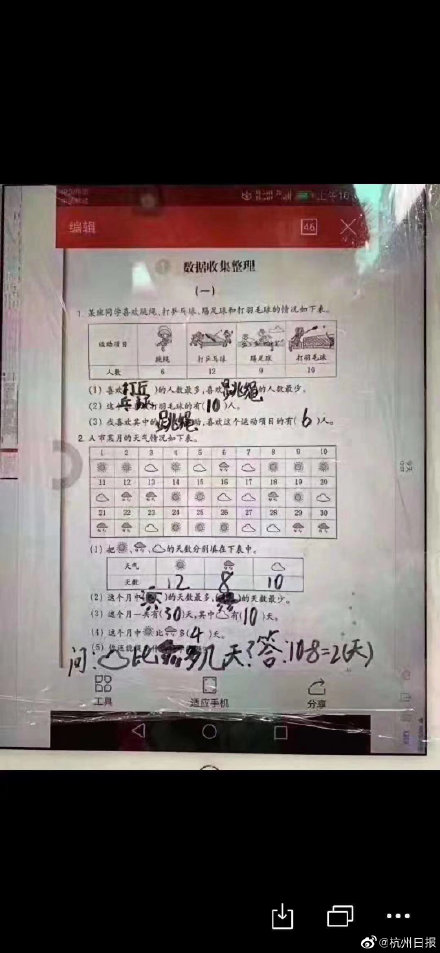 编辑
46
数据收集整理
(一)
1. 某班同学喜欢跳绳、打乒乓球、踢足球和打羽毛球的情况如下表。
运动项目 跳绳 打乒乓球 踢足球 打羽毛球
人数 6 12 9 10
(1) 喜欢(打乒乓球)的人数最多,喜欢(跳绳)的人数最少。
打羽毛球的有(10)人。
(3) 我喜欢其中的跳绳 ,喜欢这个运动项目的有(6)人。
2. A市某月的天气情况如下表。
1 2 3 4 5 6 7 8 9 10
11 12 13 14 15 16 17 18 19 20
21 22 23 24 25 26 27 28 29 30
(1) 把 、 、 的天数分别填在下表中。
天气
天数 12 8 10
(2) 这个月中( )的天数最多,( )的天数最少。
(3) 这个月一共有(30)天,其中 有(10)天。
(4) 这个月中 比 多(4)天。
(5)
问: 比 多几天?答:10-8=2(天)
工具 适应手机 分享
@杭州日报